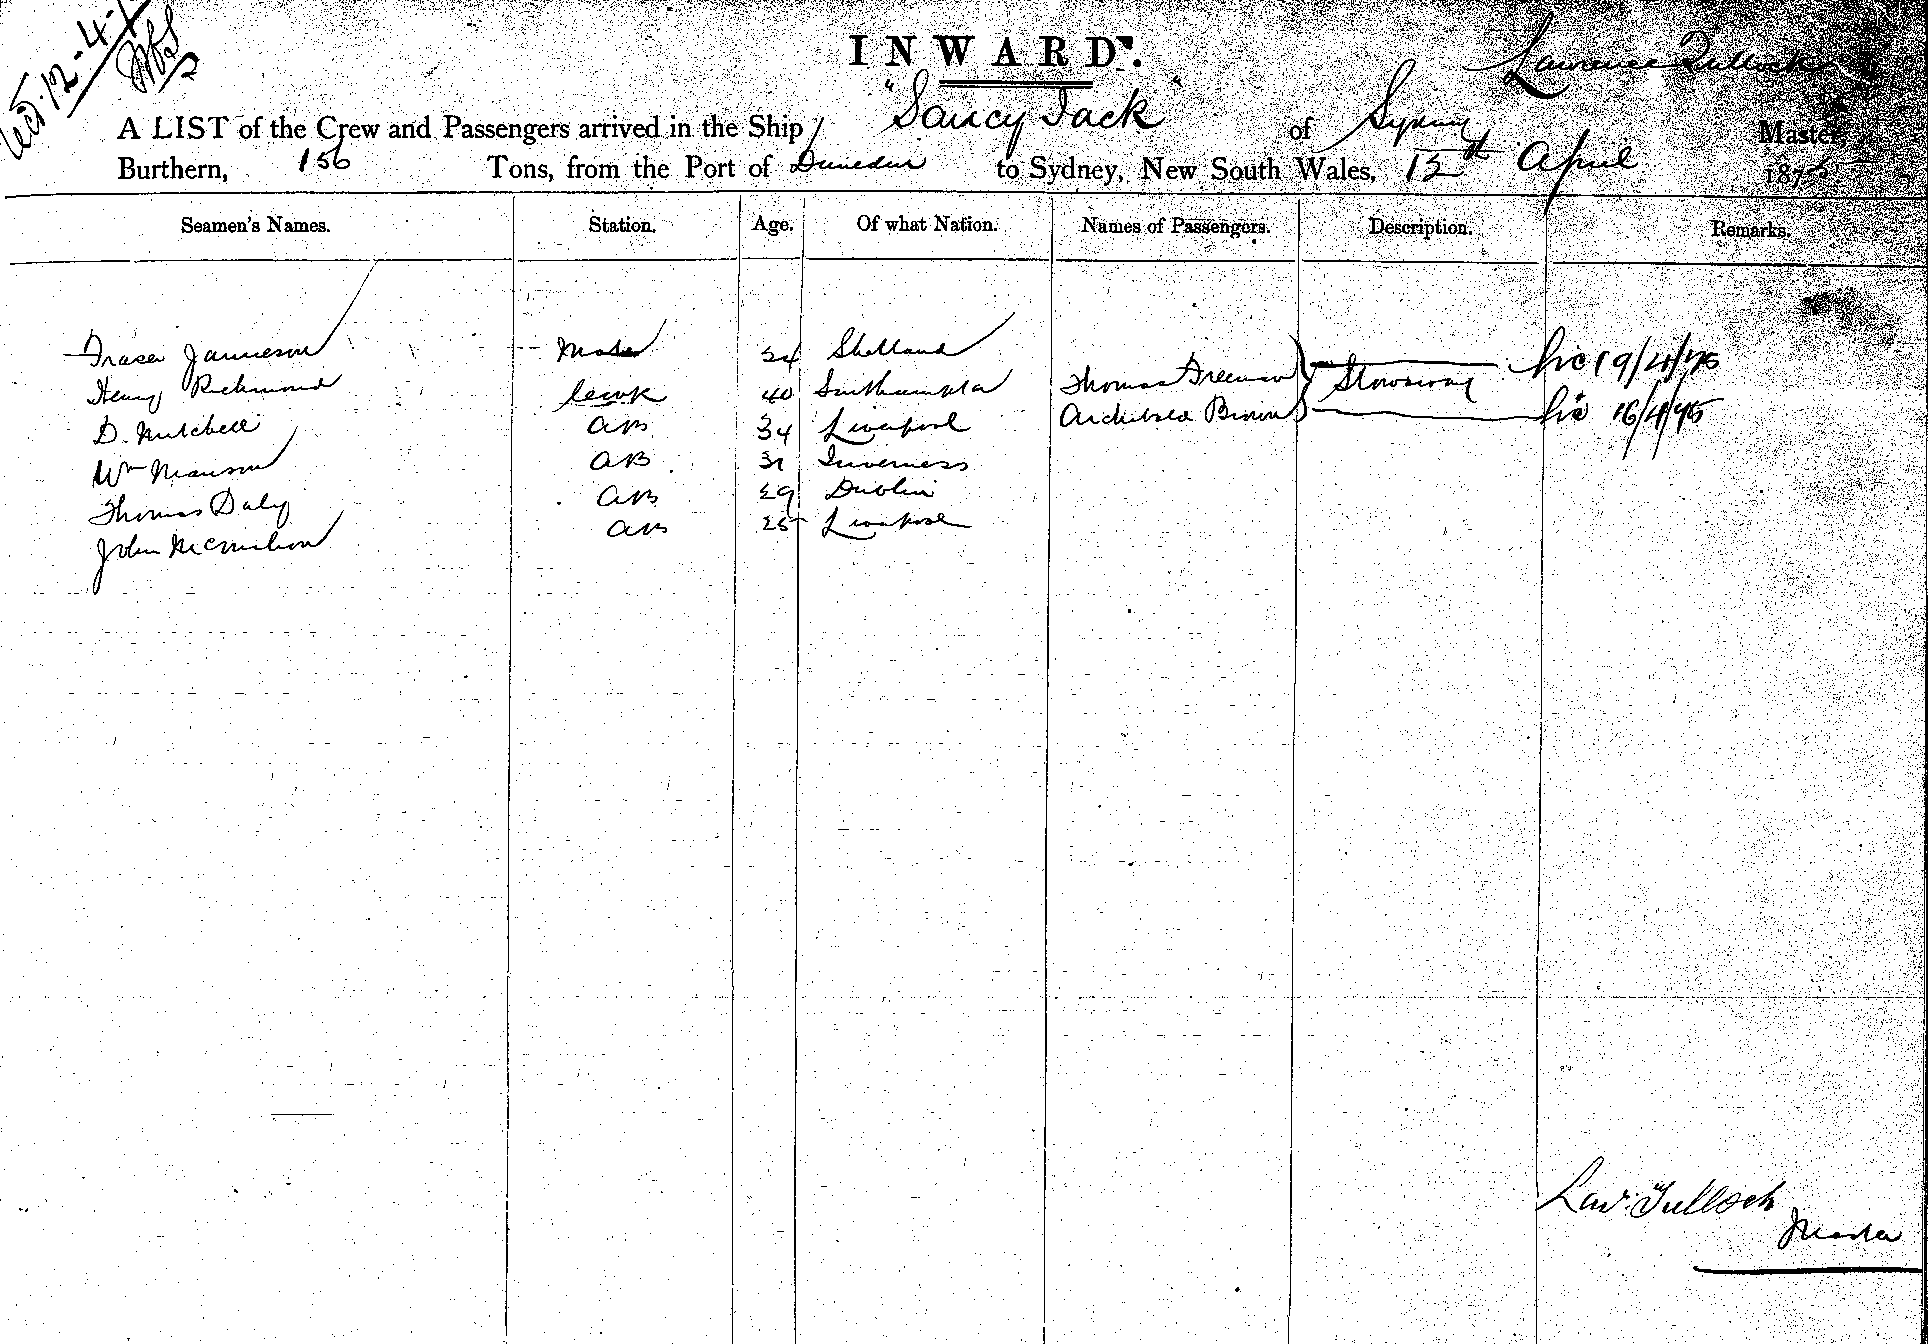 12-4-7
INWARD.
Lawrence Tulloch
A LIST of the Crew and Passengers arrived in the Ship "Saucy Jack" of Sydney Master,
Burthern, 156 Tons, from the Port of Dunedin to Sydney, New South Wales, 12th April 1875
Seamen's Names. Station. Age. Of what Nation. Names of Passengers. Description. Remarks.
Fraser Jamieson Mate 34 Shetland
Henry Richmond Cook 40 Southampton Thomas Freeman Stowaway 19/4/75
D. Mitchell AB 34 Liverpool Archibald Brown 16/4/75
Wm Manson AB 31 Inverness
Thomas Daly AB 29 Dublin
John AB 25 Liverpool
Law. Tulloch
Master